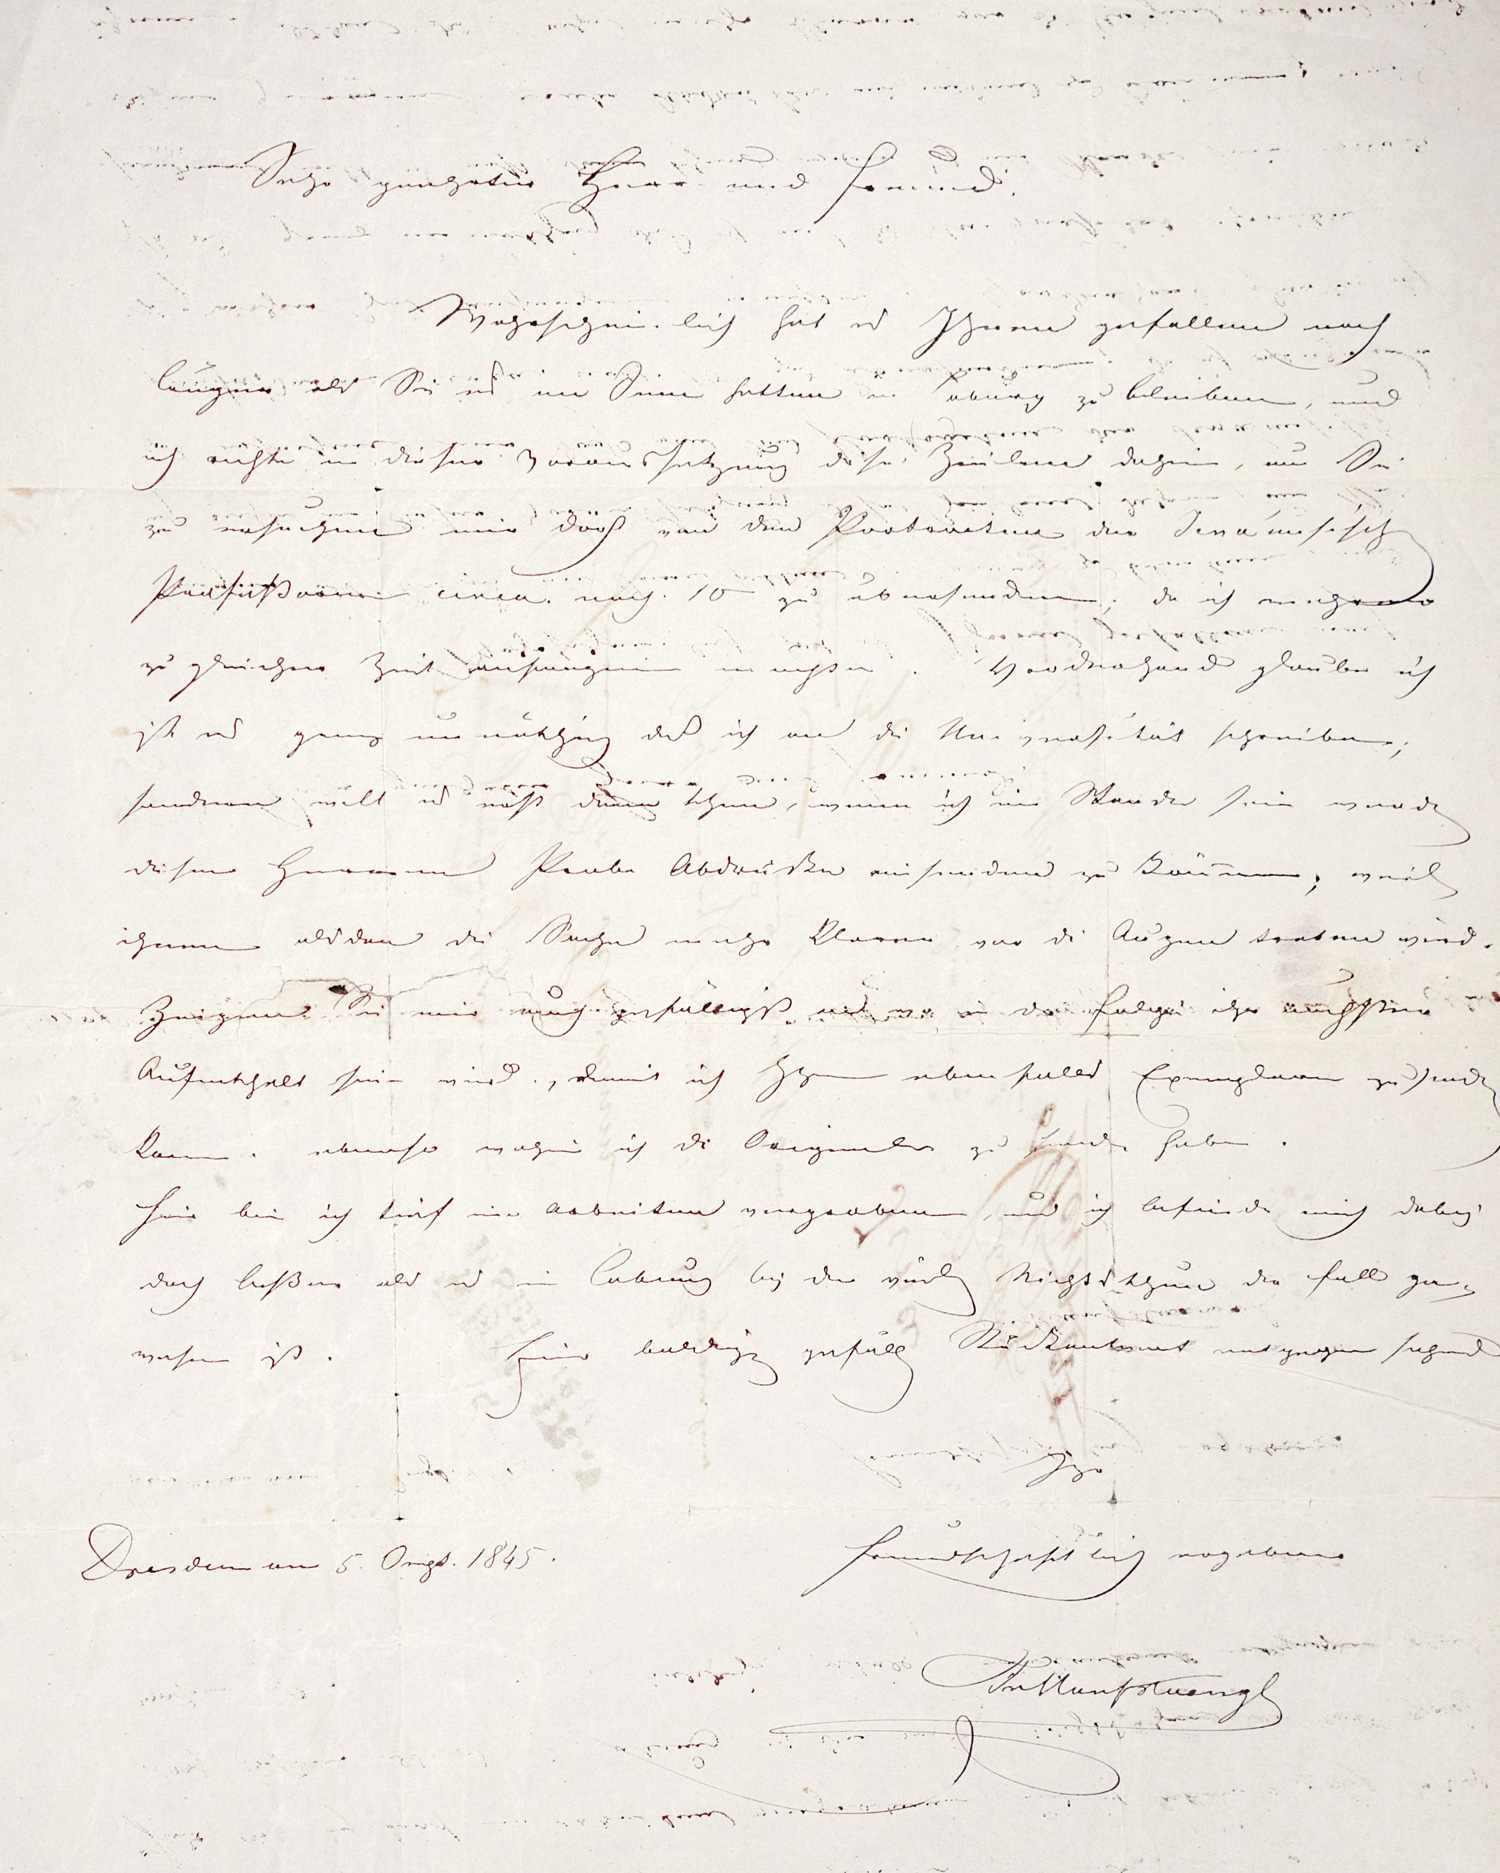 Sehr geehrter Herr und Freund!
Wahrscheinlich hat es Ihnen gefallen noch
länger als Sie es im Sinn hatten in Coburg zu bleiben, und
ich richte in dieser Voraussetzung diese Zeilen dahin, um Sie
zu ersuchen mir doch von den Portraiten der Jenaischen
Professoren circa noch 10 zu übersenden, da ich mehrere
zu gleicher Zeit anfangen möchte. Vordrohand glaube ich
ist es ganz unnöthig daß ich an die Universität schreibe,
sondern will es erst dann thun, wenn ich im Stande sein werde
diesen Herren Probe Abdrücke einsenden zu können, weil
ihnen alsdan die Sache mehr klarer vor die Augen treten wird.
Zeigen Sie mir auch gefälligst an wo in der Folge ihr nächster
Aufenthalt sein wird, damit ich Ihnen ebenfalls Exemplare zusenden
kann, ebenso wohin ich die Originale zu senden habe.
Hier bin ich tief in Arbeiten vergraben, und ich befinde mich dabei
doch besser als es in Coburg bei den vielen Nichtsthun der Fall ge-
wesen ist. Einer baldigen gefälligen Rückantwort entgegen sehend
Ihr
Dresden am 5. Augst. 1845.
freundschaftlich ergebener
Fr Hanfstaengl